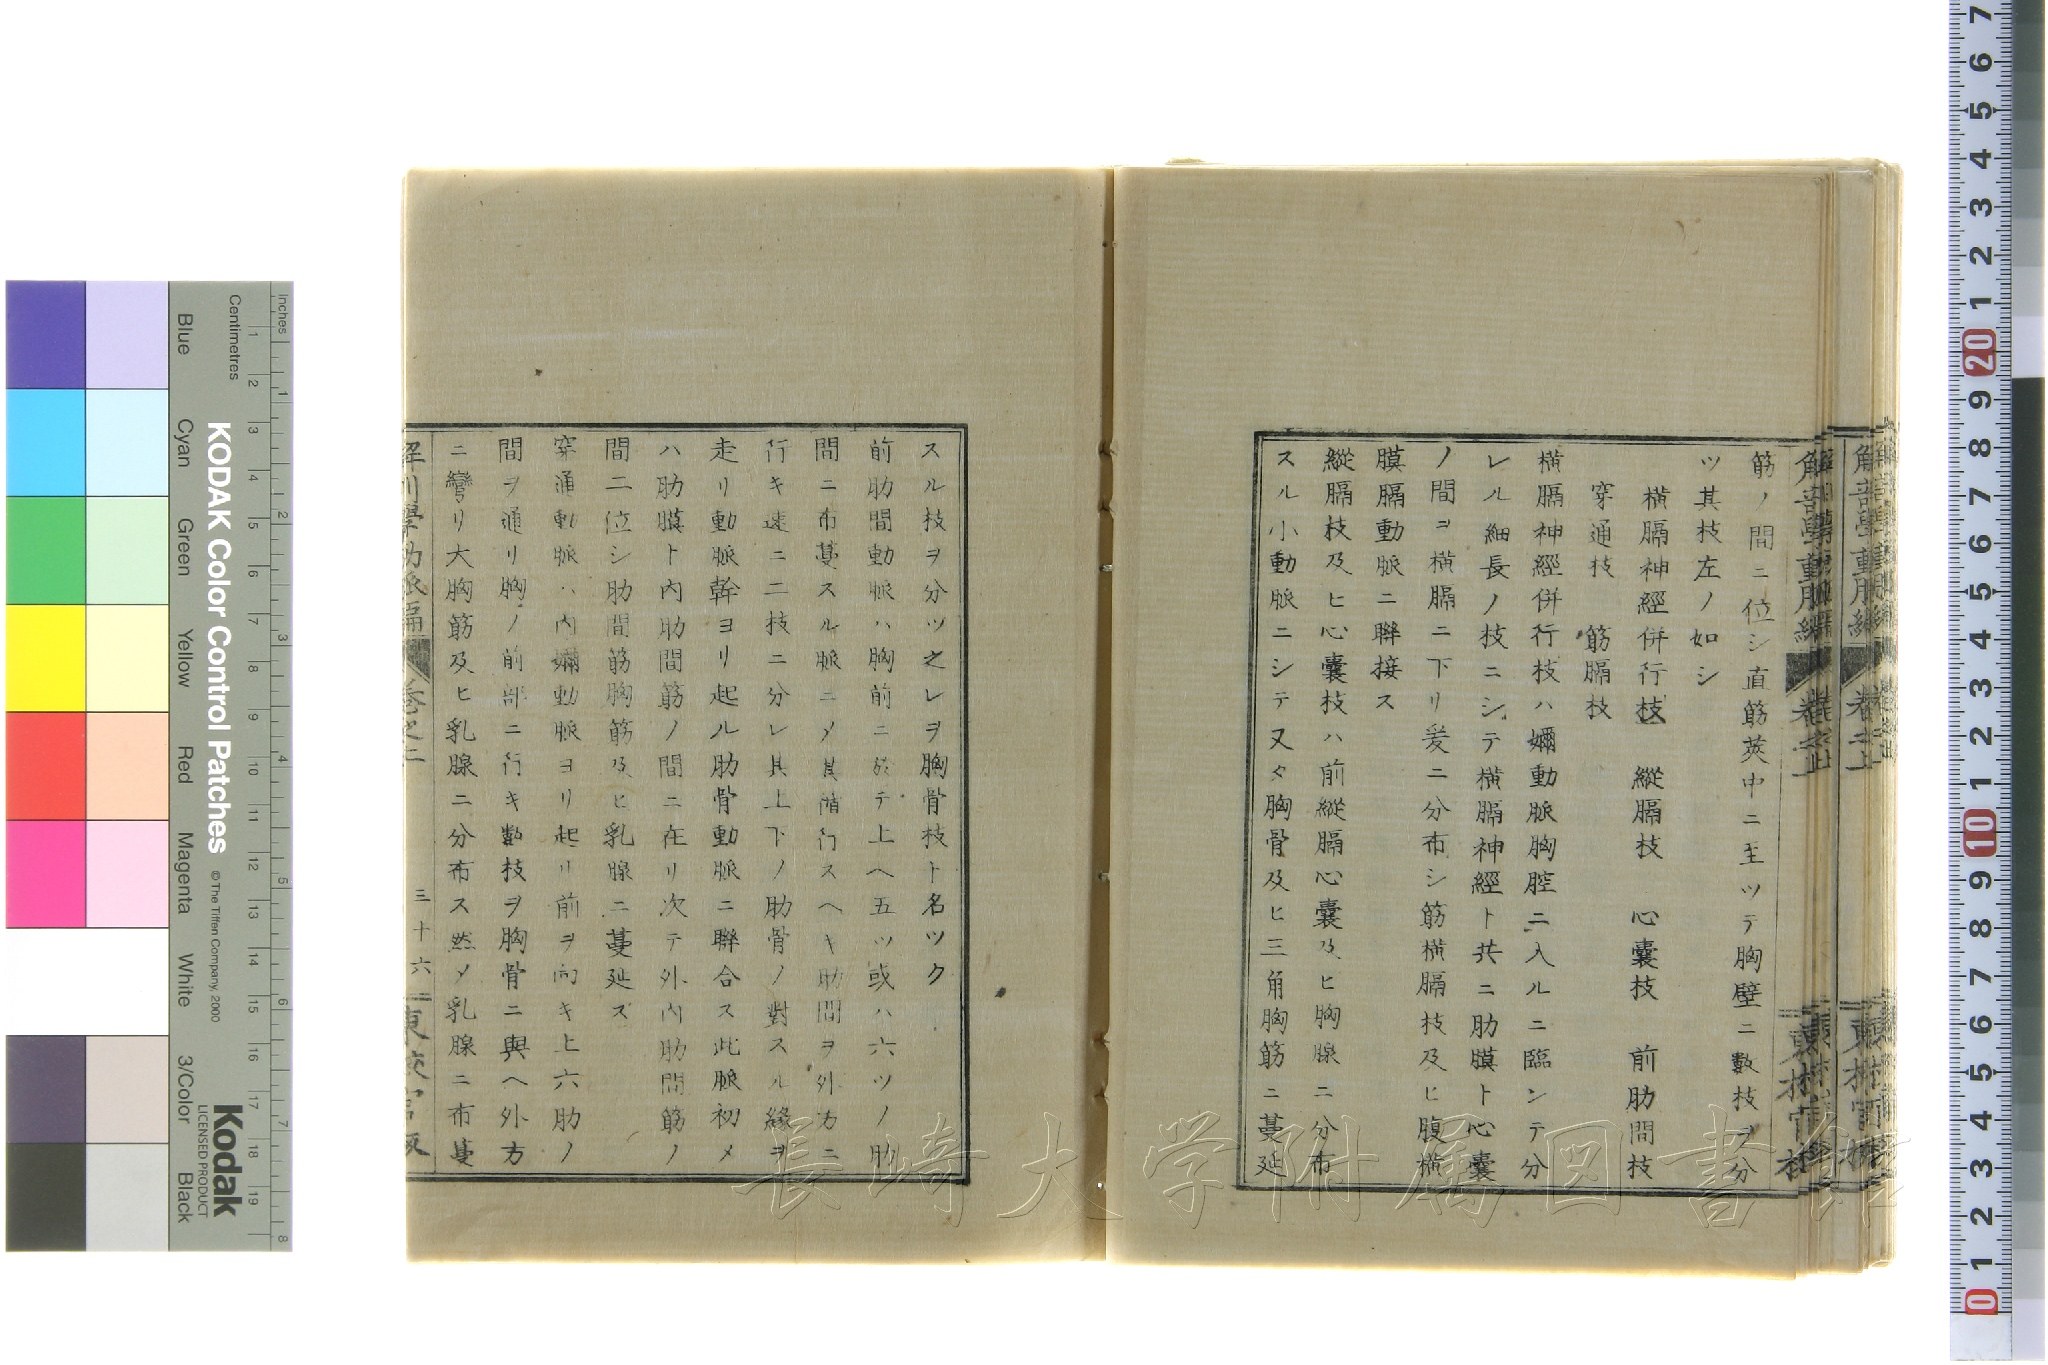 筋ノ間ニ位シ直筋莢中ニ至ツテ胸壁ニ數枝ヲ分
ツ其枝左ノ如シ
横膈神經併行枝 縱膈枝 心囊枝 前肋間枝
穿通枝 筋膈枝
横膈神經併行枝ハ嬭動脈胸腔ニ入ルニ臨ンテ分
レル細長ノ枝ニシテ横膈神經ト共ニ肋膜ト心囊
ノ間ヨ横膈ニ下リ爰ニ分布シ筋横膈枝及ヒ腹横
膜膈動脈ニ聯接ス
縱膈枝及ヒ心囊枝ハ前縱膈心囊及ヒ胸腺ニ分布
スル小動脈ニシテ又タ胸骨及ヒ三角胸筋ニ蔓延
スル技ヲ分ツ之レヲ胸骨枝ト名ツク
前肋間動脈ハ胸前ニ於テ上ヘ五ツ或ハ六ツノ肋
間ニ布蔓スル脈ニメ其階行スヘキ肋間ヲ外方ニ
行キ速ニ二技ニ分レ其上下ノ肋骨ノ對スル緣ヲ
走リ動脈幹ヨリ起ル肋骨動脈ニ聯合ス此脈初メ
ハ肋膜ト内肋間筋ノ間ニ在リ次テ外内肋間筋ノ
間二位シ肋間筋胸筋及ヒ乳腺ニ蔓延ズ
穿通動脈ハ内嬭動脈ヨリ起リ前ヲ向キ上六肋ノ
間ヲ通リ胸ノ前部ニ行キ數技ヲ胸骨ニ與ヘ外方
ニ彎リ大胸筋及ヒ乳腺ニ分布ス然メ乳腺ニ布蔓
三十六
長崎大学附属図書館
KODAK Color Control Patches
© The Tiffen Company, 2000
Kodak
LICENSED PRODUCT
Inches
Centimetres
Blue
Cyan
Green
Yellow
Red
Magenta
White
3/Color
Black